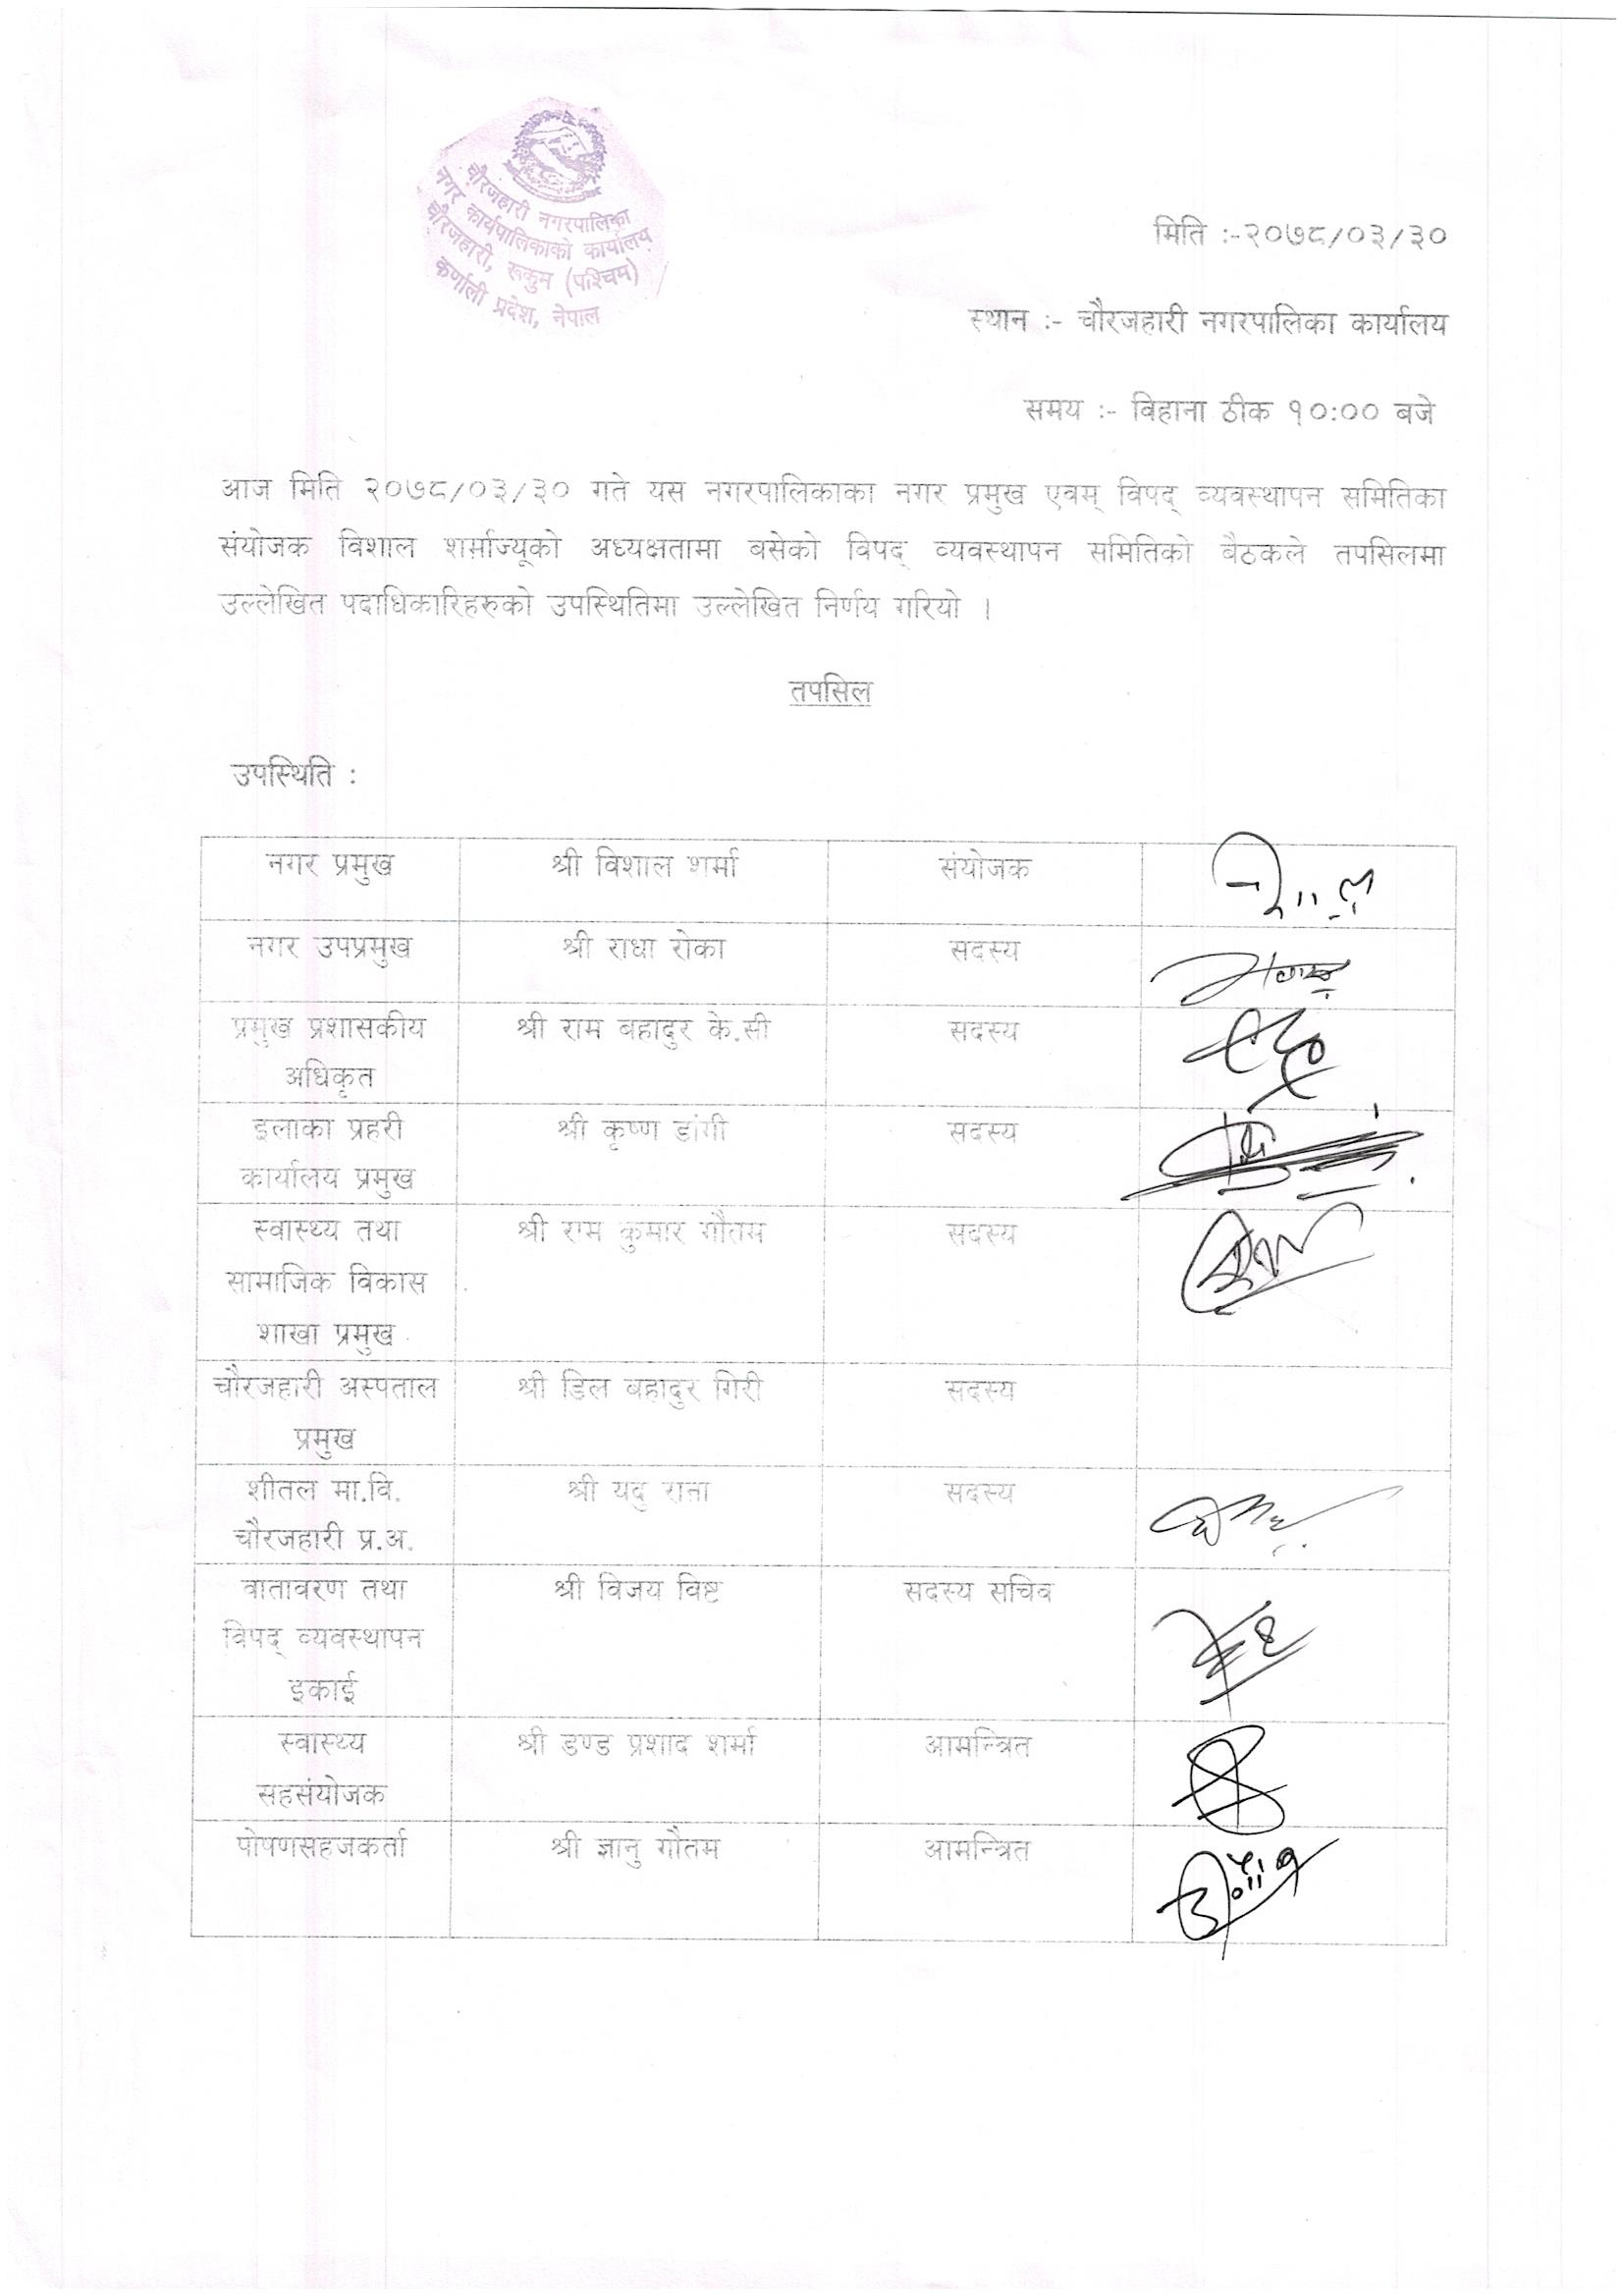 चौरजहारी नगरपालिका
नगर कार्यपालिकाको कार्यालय
चौरजहारी, रूकुम (पश्चिम)
कर्णाली प्रदेश, नेपाल
मिति :-२०७८/०३/३०
स्थान :- चौरजहारी नगरपालिका कार्यालय
समय :- विहाना ठीक १०:०० बजे
आज मिति २०७८/०३/३० गते यस नगरपालिकाका नगर प्रमुख एवम् विपद् व्यवस्थापन समितिका
संयोजक विशाल शर्माज्यूको अध्यक्षतामा बसेको विपद् व्यवस्थापन समितिको बैठकले तपसिलमा
उल्लेखित पदाधिकारिहरुको उपस्थितिमा उल्लेखित निर्णय गरियो ।
तपसिल
उपस्थिति :
नगर प्रमुख श्री विशाल शर्मा संयोजक
नगर उपप्रमुख श्री राधा रोका सदस्य
प्रमुख प्रशासकीय श्री राम बहादुर के.सी सदस्य
अधिकृत
इलाका प्रहरी श्री कृष्ण डांगी सदस्य
कार्यालय प्रमुख
स्वास्थ्य तथा श्री राम कुमार गौतम सदस्य
सामाजिक विकास
शाखा प्रमुख
चौरजहारी अस्पताल श्री डिल बहादुर गिरी सदस्य
प्रमुख
शीतल मा.वि. श्री यदु राना सदस्य
चौरजहारी प्र.अ.
वातावरण तथा श्री विजय विष्ट सदस्य सचिव
विपद् व्यवस्थापन
इकाई
स्वास्थ्य श्री डण्ड प्रशाद शर्मा आमन्त्रित
सहसंयोजक
पोषणसहजकर्ता श्री ज्ञानु गौतम आमन्त्रित